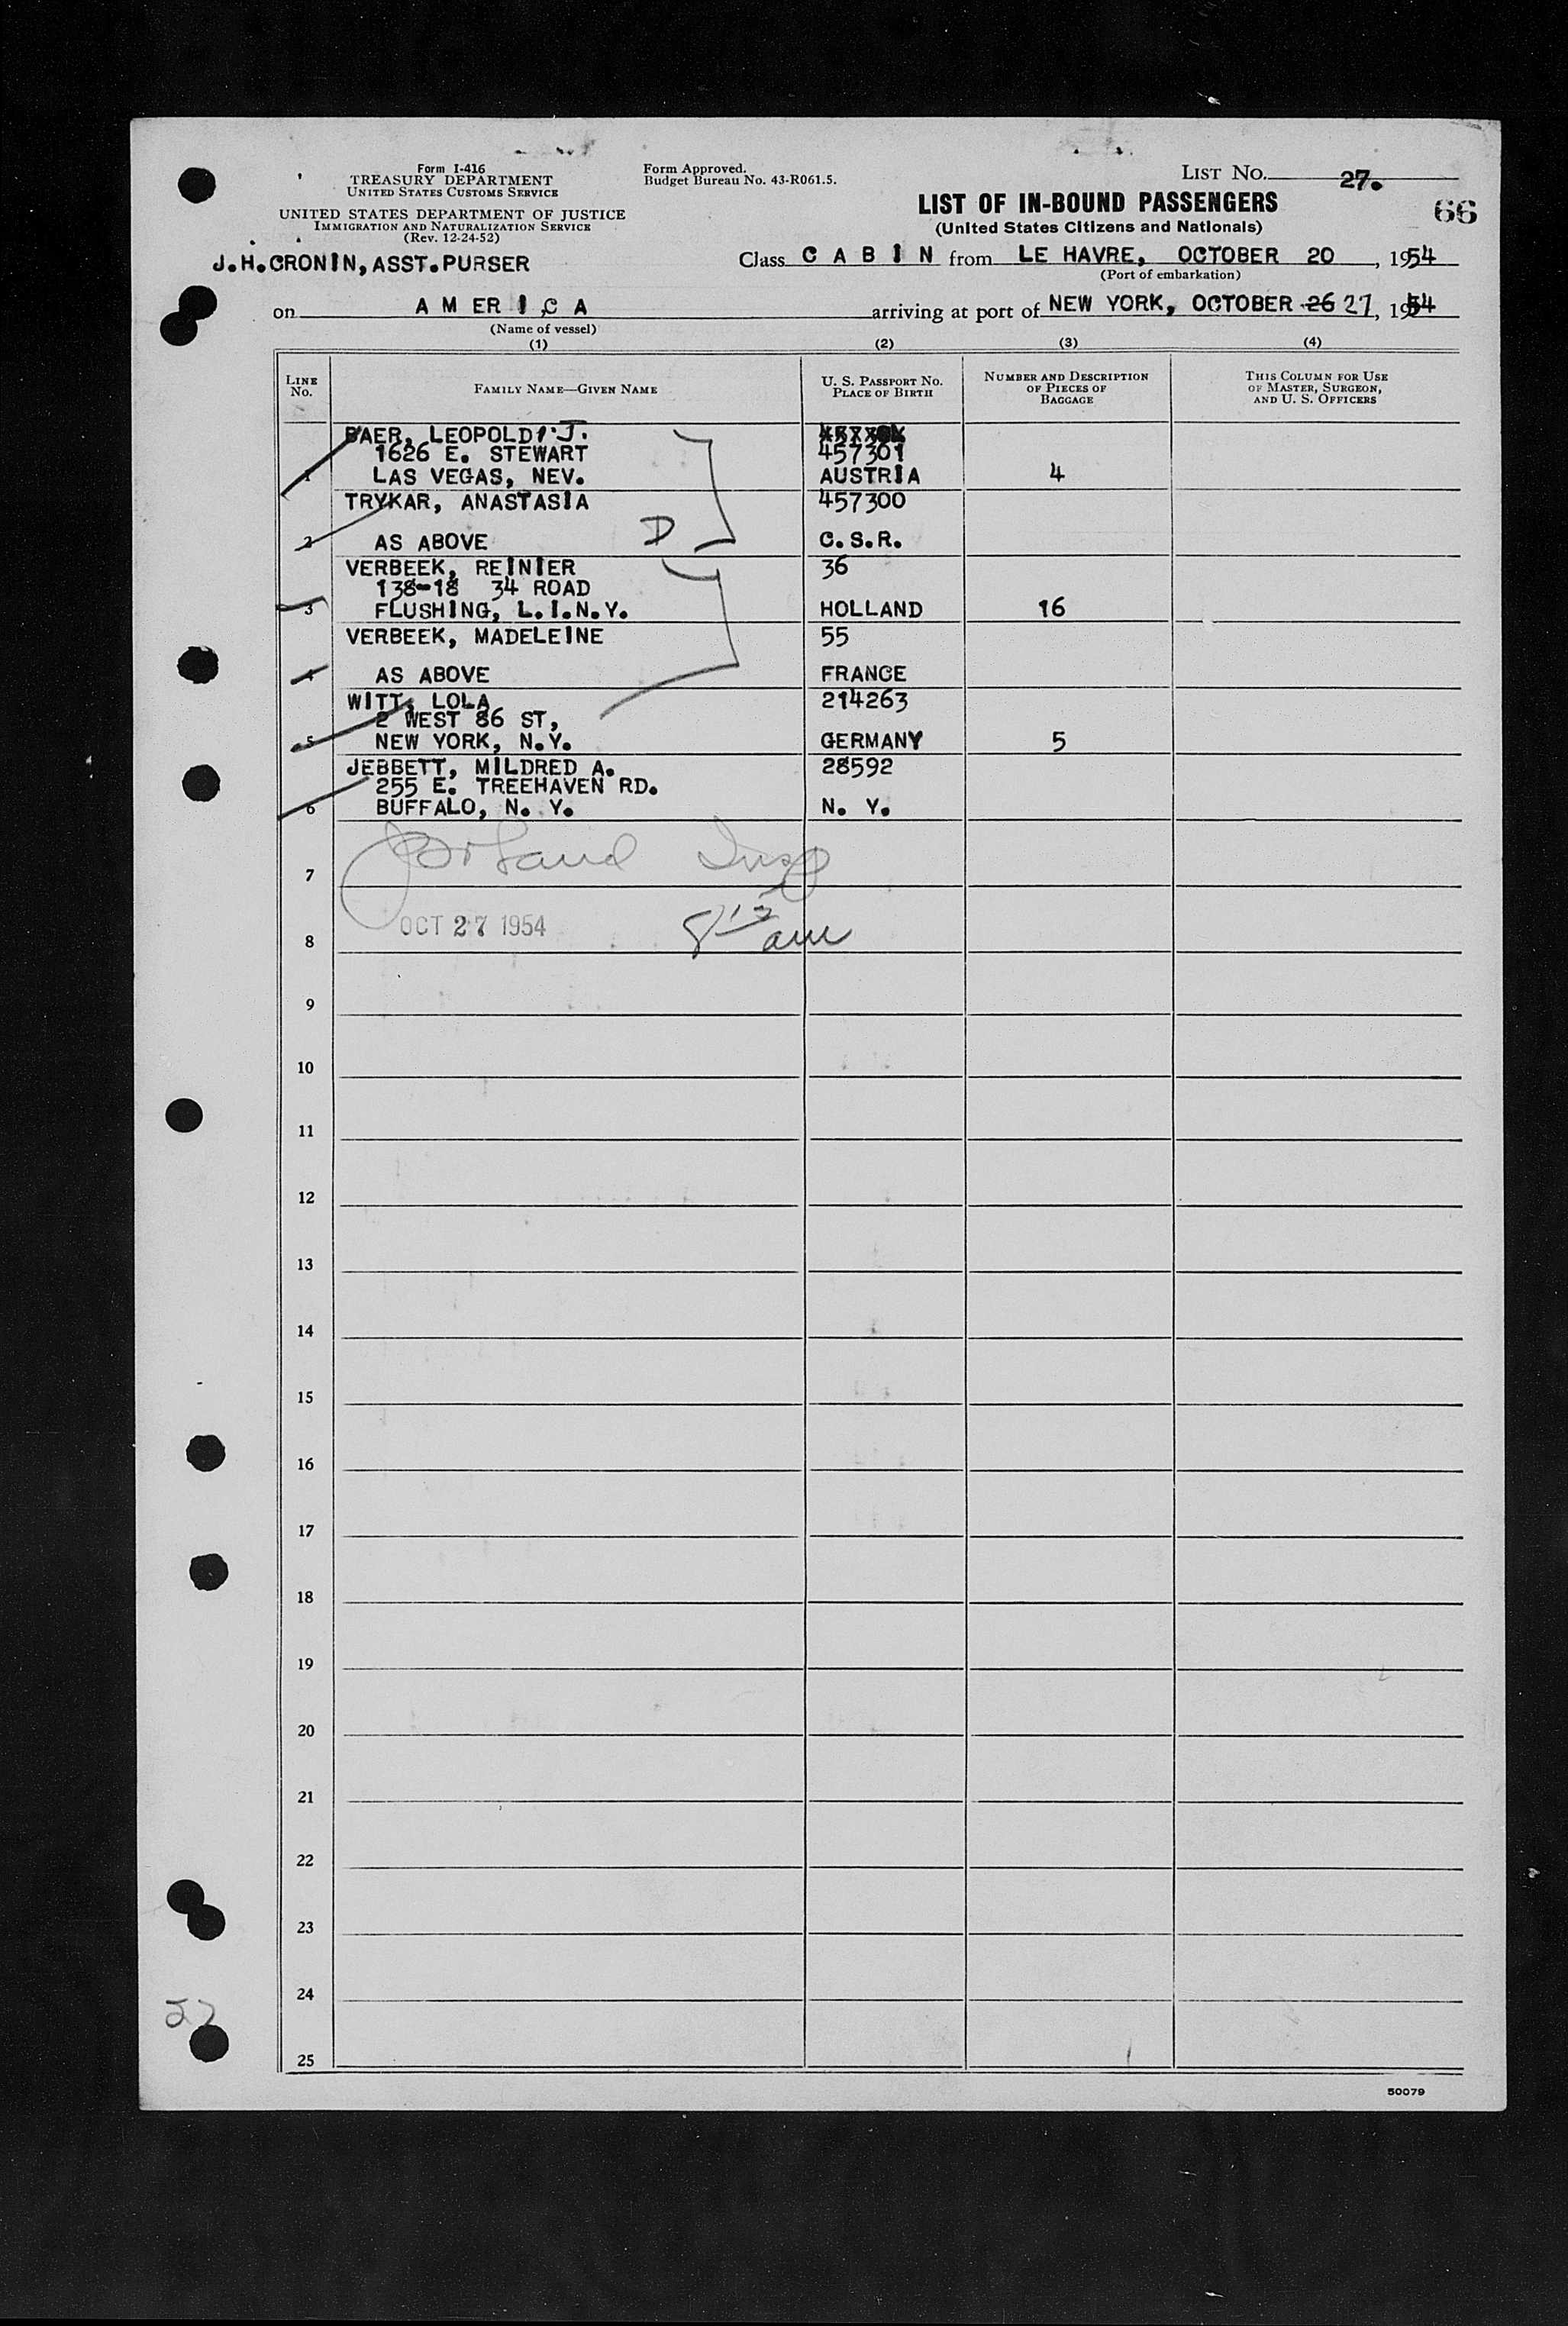 Form I-416
TREASURY DEPARTMENT
UNITED STATES CUSTOMS SERVICE
UNITED STATES DEPARTMENT OF JUSTICE
IMMIGRATION AND NATURALIZATION SERVICE
(Rev. 12-24-52)
Form Approved.
Budget Bureau No. 43-R061.5.
LIST NO. 27.
LIST OF IN-BOUND PASSENGERS
66
(United States Citizens and Nationals)
J.H.CRONIN, ASST.PURSER
Class CABIN from LE HAVRE, OCTOBER 20, 1954
(Port of embarkation)
on AMERICA arriving at port of NEW YORK, OCTOBER 26 27, 1954
(Name of vessel)
(1) (2) (3) (4)
LINE No. FAMILY NAME—GIVEN NAME U. S. PASSPORT NO. PLACE OF BIRTH NUMBER AND DESCRIPTION OF PIECES OF BAGGAGE THIS COLUMN FOR USE OF MASTER, SURGEON, AND U. S. OFFICERS
BAER, LEOPOLD J.
1626 E. STEWART 457301
1 LAS VEGAS, NEV. AUSTRIA 4
TRYKAR, ANASTASIA 457300
D
2 AS ABOVE C.S.R.
VERBEEK, REINIER 36
138-18 34 ROAD
3 FLUSHING, L.I.N.Y. HOLLAND 16
VERBEEK, MADELEINE 55
4 AS ABOVE FRANCE
WITT, LOLA 214263
2 WEST 86 ST,
5 NEW YORK, N.Y. GERMANY 5
JEBBETT, MILDRED A. 28592
255 E. TREEHAVEN RD.
6 BUFFALO, N. Y. N. Y.
Insp
7
OCT 27 1954 8 15 am
8
9
10
11
12
13
14
15
16
17
18
19
20
21
22
23
24
27
25
50079